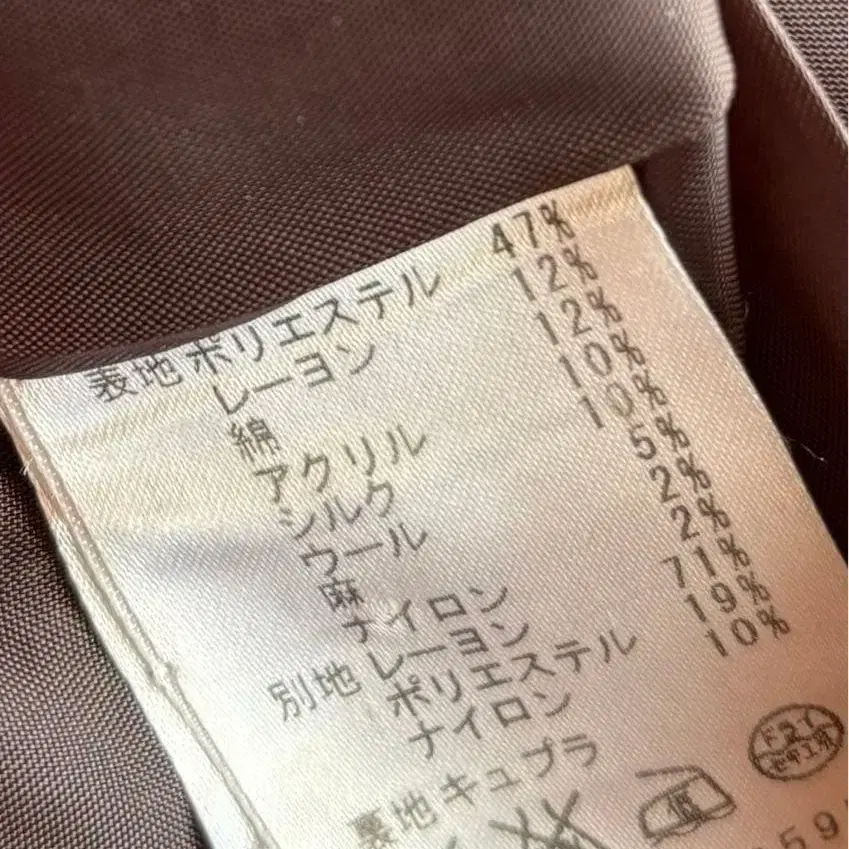 表地 ポリエステル 47%
レーヨン 12%
綿 12%
アクリル 10%
シルク 10%
ウール 5%
麻 2%
ナイロン 2%
別地 レーヨン 71%
ポリエステル 19%
ナイロン 10%
裏地 キュプラ
ドライ
セキユ系
低
595